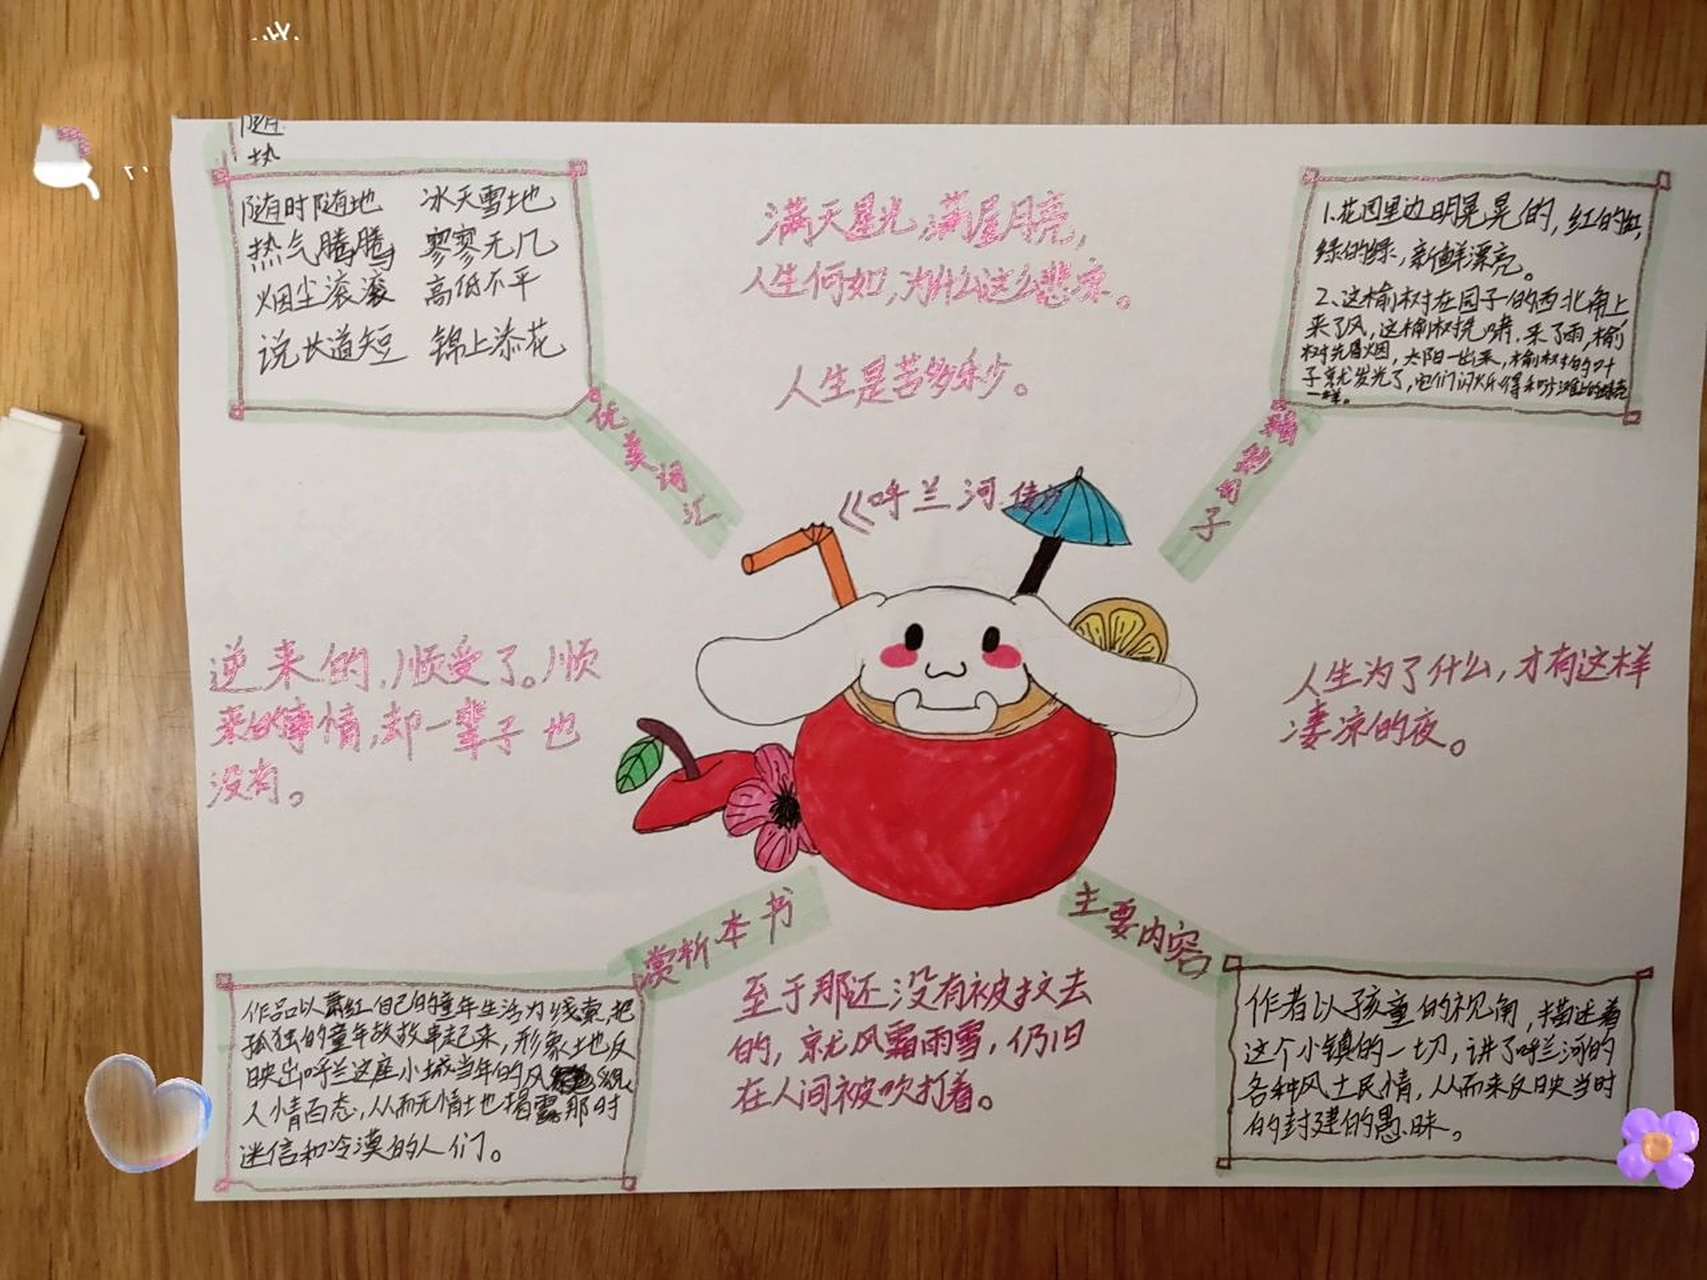 随时随地 冰天雪地
热气腾腾 寥寥无几
烟尘滚滚 高低不平
说长道短 锦上添花
优美词汇
满天星光,满屋月亮,
人生何如,为什么这么悲凉。
人生是苦多乐少。
1.花园里边明晃晃的,红的红,
绿的绿,新鲜漂亮。
2、这榆树在园子的西北角上
来了风,这榆树先啸,来了雨,榆
树先冒烟,太阳一出来,榆树的叶
子就发光了,它们闪烁得和沙滩上的蚌壳
一样。
精彩句子
《呼兰河传》
逆来的,顺受了。顺
来的事情,却一辈子也
没有。
人生为了什么,才有这样
凄凉的夜。
赏析本书
作品以萧红自己的童年生活为线索,把
孤独的童年故故事起来,形象土地反
映出呼兰这座小城当年的风
人情百态,从而无情土也揭露那时
迷信和冷漠的人们。
至于那还没有被拉去
的,就风霜雨雪,仍旧
在人间被吹打着。
主要内容
作者以孩童的视角,描述着
这个小镇的一切,讲了呼兰河的
各种风土民情,从而来反映当时
的封建的愚昧。